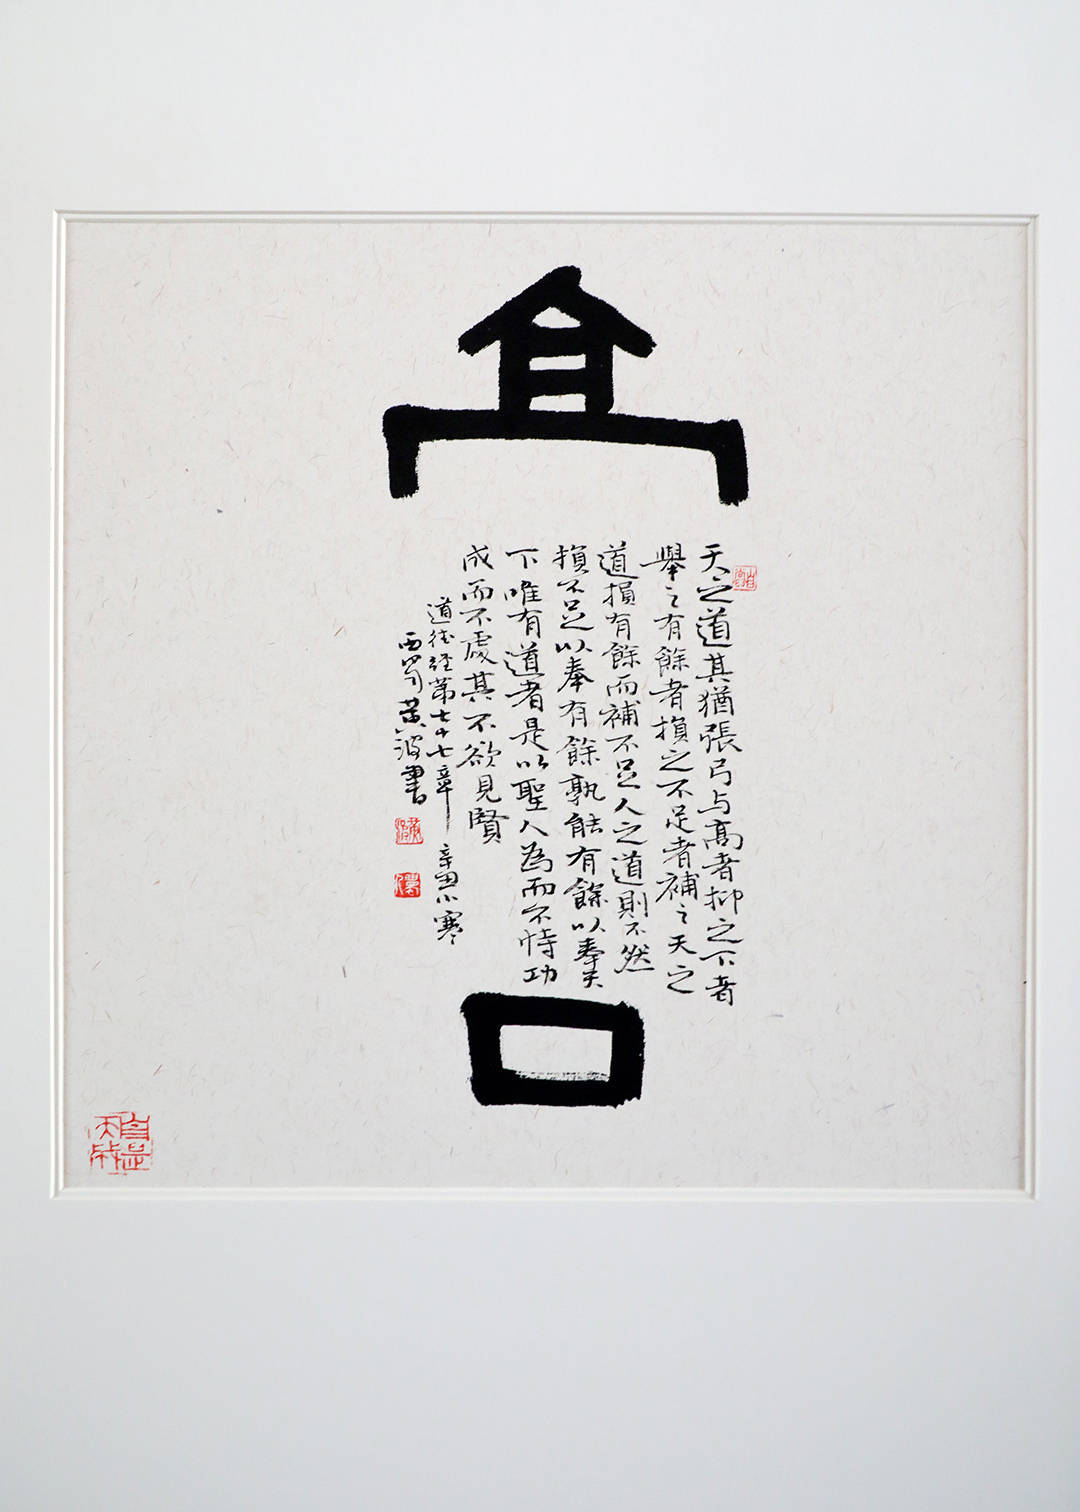 高
天之道其猶張弓与高者抑之下者
舉之有餘者損之不足者補之天之
道損有餘而補不足人之道則不然
損不足以奉有餘孰能有餘以奉天
下唯有道者是以聖人為而不恃功
成而不處其不欲見賢
道德經第七十七章 辛丑小寒
西蜀黄波書
自是天成